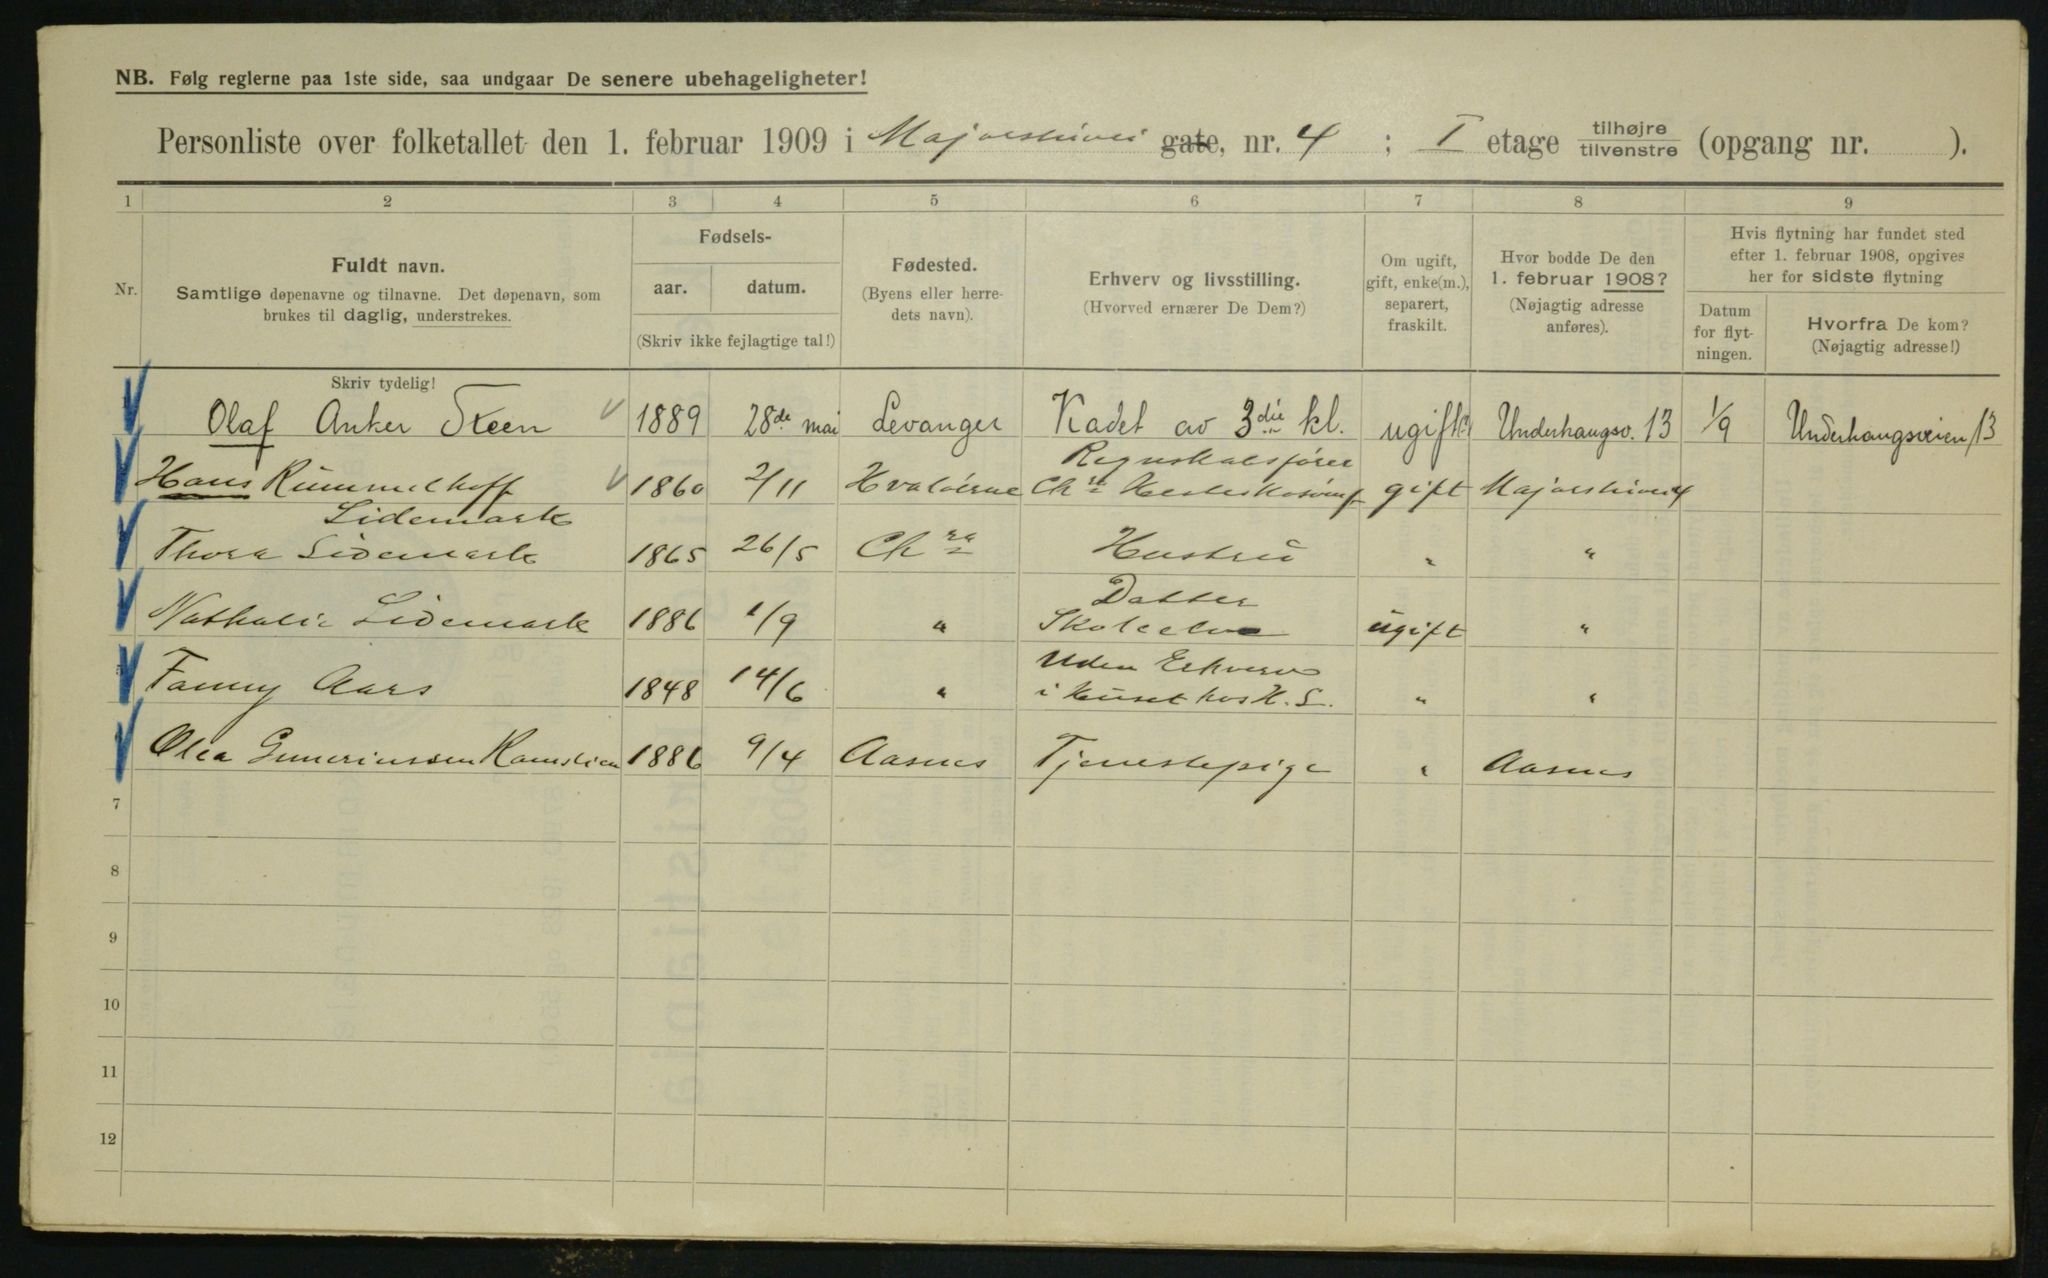 NB. Følg reglerne paa 1ste side, saa undgaar De senere ubehageligheter!
Personliste over folketallet den 1. februar 1909 i Majorstuvei gate, nr. 4 ; I etage tilhøjre tilvenstre (opgang nr. ).
1 2 3 4 5 6 7 8 9
Nr.
Fuldt navn.
Samtlige døpenavne og tilnavne. Det døpenavn, som
brukes til daglig, understrekes.
Skriv tydelig!
Fødsels-
aar. datum.
(Skriv ikke fejlagtige tal!)
Fødested.
(Byens eller herre-
dets navn).
Erhverv og livsstilling.
(Hvorved ernærer De Dem?)
Om ugift,
gift, enke(m.),
separert,
fraskilt.
Hvor bodde De den
1. februar 1908?
(Nøjagtig adresse
anføres).
Hvis flytning har fundet sted
efter 1. februar 1908, opgives
her for sidste flytning
Datum
for flyt-
ningen.
Hvorfra De kom?
(Nøjagtig adresse!)
Olaf Anker Steen 1889 28de mai Levanger Kadet av 3die kl. ugift Underhaugsv. 13 1/9 Underhaugsveien 13
Regnskabsfører
Hans Rummelhoff 1860 2/11 Hvaløerne Chra gift Majorstuvei 4
Lidemark
Thora Lidemark 1865 26/5 Chra Hustru " "
Datter
Nathalie Lidemark 1886 1/9 " ugift "
Uden Erhverv
5 Fanny Aars 1848 14/6 " i Huset hos H. L. " "
Olea Guneriussen 1886 9/4 Aasnes Tjenestepige " Aasnes
7
8
9
10
11
12